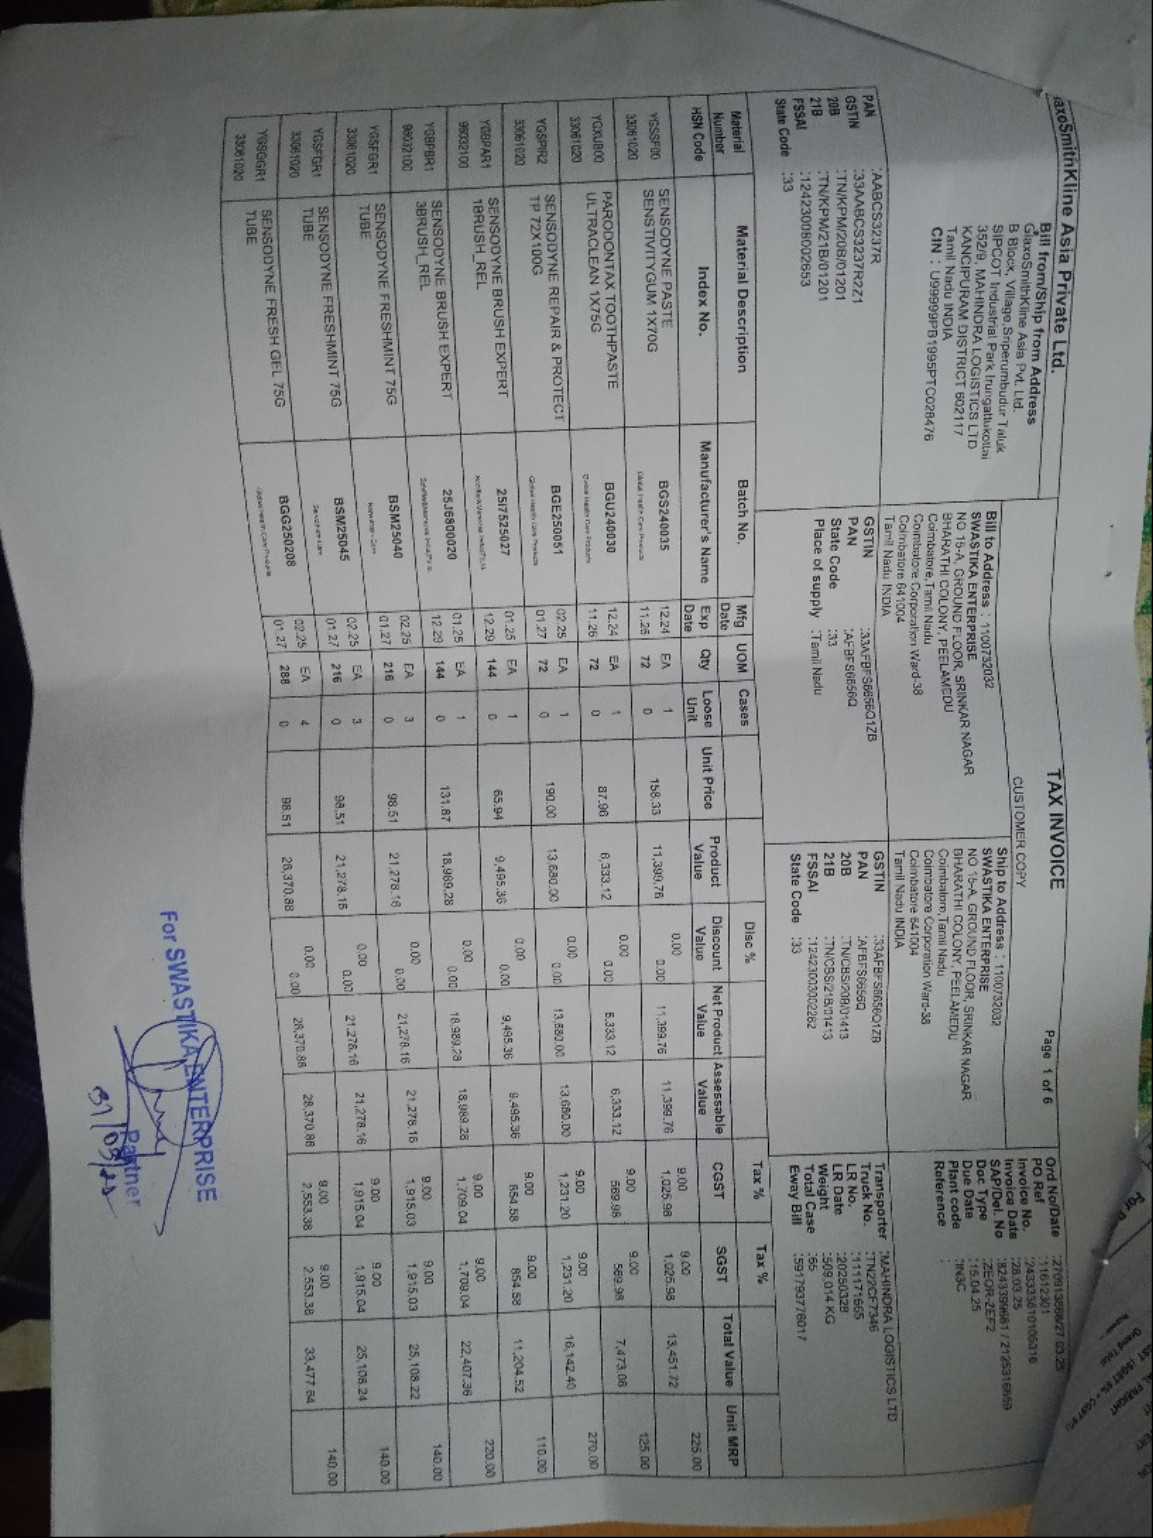 GlaxoSmithKline Asia Private Ltd.
TAX INVOICE
CUSTOMER COPY
Page 1 of 6
Bill from/Ship from Address
GlaxoSmithKline Asia Pvt. Ltd.
B Block, Village,Sriperumbudur Taluk
SIPCOT Industrial Park Irungattukottai
352/9, MAHINDRA LOGISTICS LTD
KANCIPURAM DISTRICT 602117
Tamil Nadu INDIA
CIN : U99999PB1995PTC028476
PAN :AABCS3237R
GSTIN :33AABCS3237R2Z1
20B :TN/KPM/20B/01201
21B :TN/KPM/21B/01201
FSSAI :12423008002653
State Code :33
Bill to Address : 1100732032
SWASTIKA ENTERPRISE
NO 15-A, GROUND FLOOR, SRINKAR NAGAR
BHARATHI COLONY, PEELAMEDU
Coimbatore,Tamil Nadu
Coimbatore Corporation Ward-38
Coimbatore 641004
Tamil Nadu INDIA
GSTIN :33AFBFS6656Q1ZB
PAN :AFBFS6656Q
State Code :33
Place of supply :Tamil Nadu
Ship to Address : 1100732032
SWASTIKA ENTERPRISE
NO 15-A, GROUND FLOOR, SRINKAR NAGAR
BHARATHI COLONY, PEELAMEDU
Coimbatore,Tamil Nadu
Coimbatore Corporation Ward-38
Coimbatore 641004
Tamil Nadu INDIA
GSTIN :33AFBFS6656Q1ZB
PAN :AFBFS6656Q
20B :TN/CBS/20B/01413
21B :TN/CBS/21B/01413
FSSAI :12423003002282
State Code :33
Ord No/Date
PO Ref :11612301
Invoice No.
Invoice Date :28.03.25
SAP/Del. No
Doc Type :ZEOR-ZEF2
Due Date :15.04.25
Plant code :IN3C
Reference :
Transporter :MAHINDRA LOGISTICS LTD
Truck No. :TN22CF7346
LR No. :111171665
LR Date :20250328
Weight :509.014 KG
Total Case :65
Eway Bill :591793776017
Material Number Material Description Batch No. Mfg Date UOM Cases Disc % Tax % Tax %
HSN Code Index No. Manufacturer's Name Exp Date Qty Loose Unit Unit Price Product Value Discount Value Net Product Value Assessable Value CGST SGST Total Value Unit MRP
YGSSF00 SENSODYNE PASTE BGS240035 12.24 EA 1 0.00 9.00 9.00
33061020 SENSTIVITYGUM 1X70G Global Health Care Products 11.26 72 0 158.33 11,399.76 0.00 11,399.76 11,399.76 1,025.98 1,025.98 13,451.72 225.00
YGXUB00 PARODONTAX TOOTHPASTE BGU240030 12.24 EA 1 0.00 9.00 9.00
33061020 ULTRACLEAN 1X75G Global Health Care Products 11.26 72 0 87.96 6,333.12 0.00 6,333.12 6,333.12 569.98 569.98 7,473.08 125.00
YGSPIR2 SENSODYNE REPAIR & PROTECT BGE250051 02.25 EA 1 0.00 9.00 9.00
33061020 TP 72X100G Global Health Care Products 01.27 72 0 190.00 13,680.00 0.00 13,680.00 13,680.00 1,231.20 1,231.20 16,142.40 270.00
YGBPAR1 SENSODYNE BRUSH EXPERT 25I7525027 01.25 EA 1 0.00 9.00 9.00
96032100 1BRUSH_REL 12.29 144 0 65.94 9,495.36 0.00 9,495.36 9,495.36 854.58 854.58 11,204.52 110.00
YGBPBR1 SENSODYNE BRUSH EXPERT 25J6800020 01.25 EA 1 0.00 9.00 9.00
96032100 3BRUSH_REL 12.29 144 0 131.87 18,989.28 0.00 18,989.28 18,989.28 1,709.04 1,709.04 22,407.36 220.00
YGSFGR1 SENSODYNE FRESHMINT 75G BSM25040 02.25 EA 3 0.00 9.00 9.00
33061020 TUBE 01.27 216 0 98.51 21,278.16 0.00 21,278.16 21,278.16 1,915.03 1,915.03 25,108.22 140.00
YGSFGR1 SENSODYNE FRESHMINT 75G BSM25045 02.25 EA 3 0.00 9.00 9.00
33061020 TUBE 01.27 216 0 98.51 21,278.16 0.00 21,278.16 21,278.16 1,915.04 1,915.04 25,108.24 140.00
YGSGGR1 SENSODYNE FRESH GEL 75G BGG250208 02.25 EA 4 0.00 9.00 9.00
33061020 TUBE Global Health Care Products 01.27 288 0 98.51 28,370.88 0.00 28,370.88 28,370.88 2,553.38 2,553.38 33,477.64 140.00
For SWASTIKA ENTERPRISE
Partner